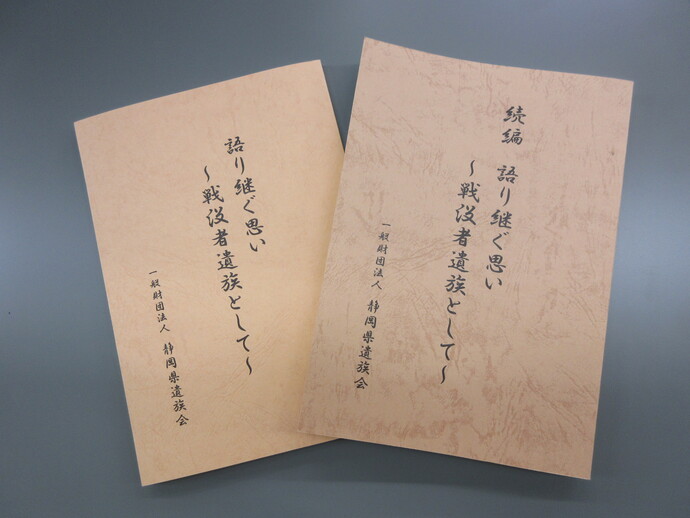 語り継ぐ思い
～戦没者遺族として～
一般財団法人 静岡県遺族会
続編 語り継ぐ思い
～戦没者遺族として～
一般財団法人 静岡県遺族会